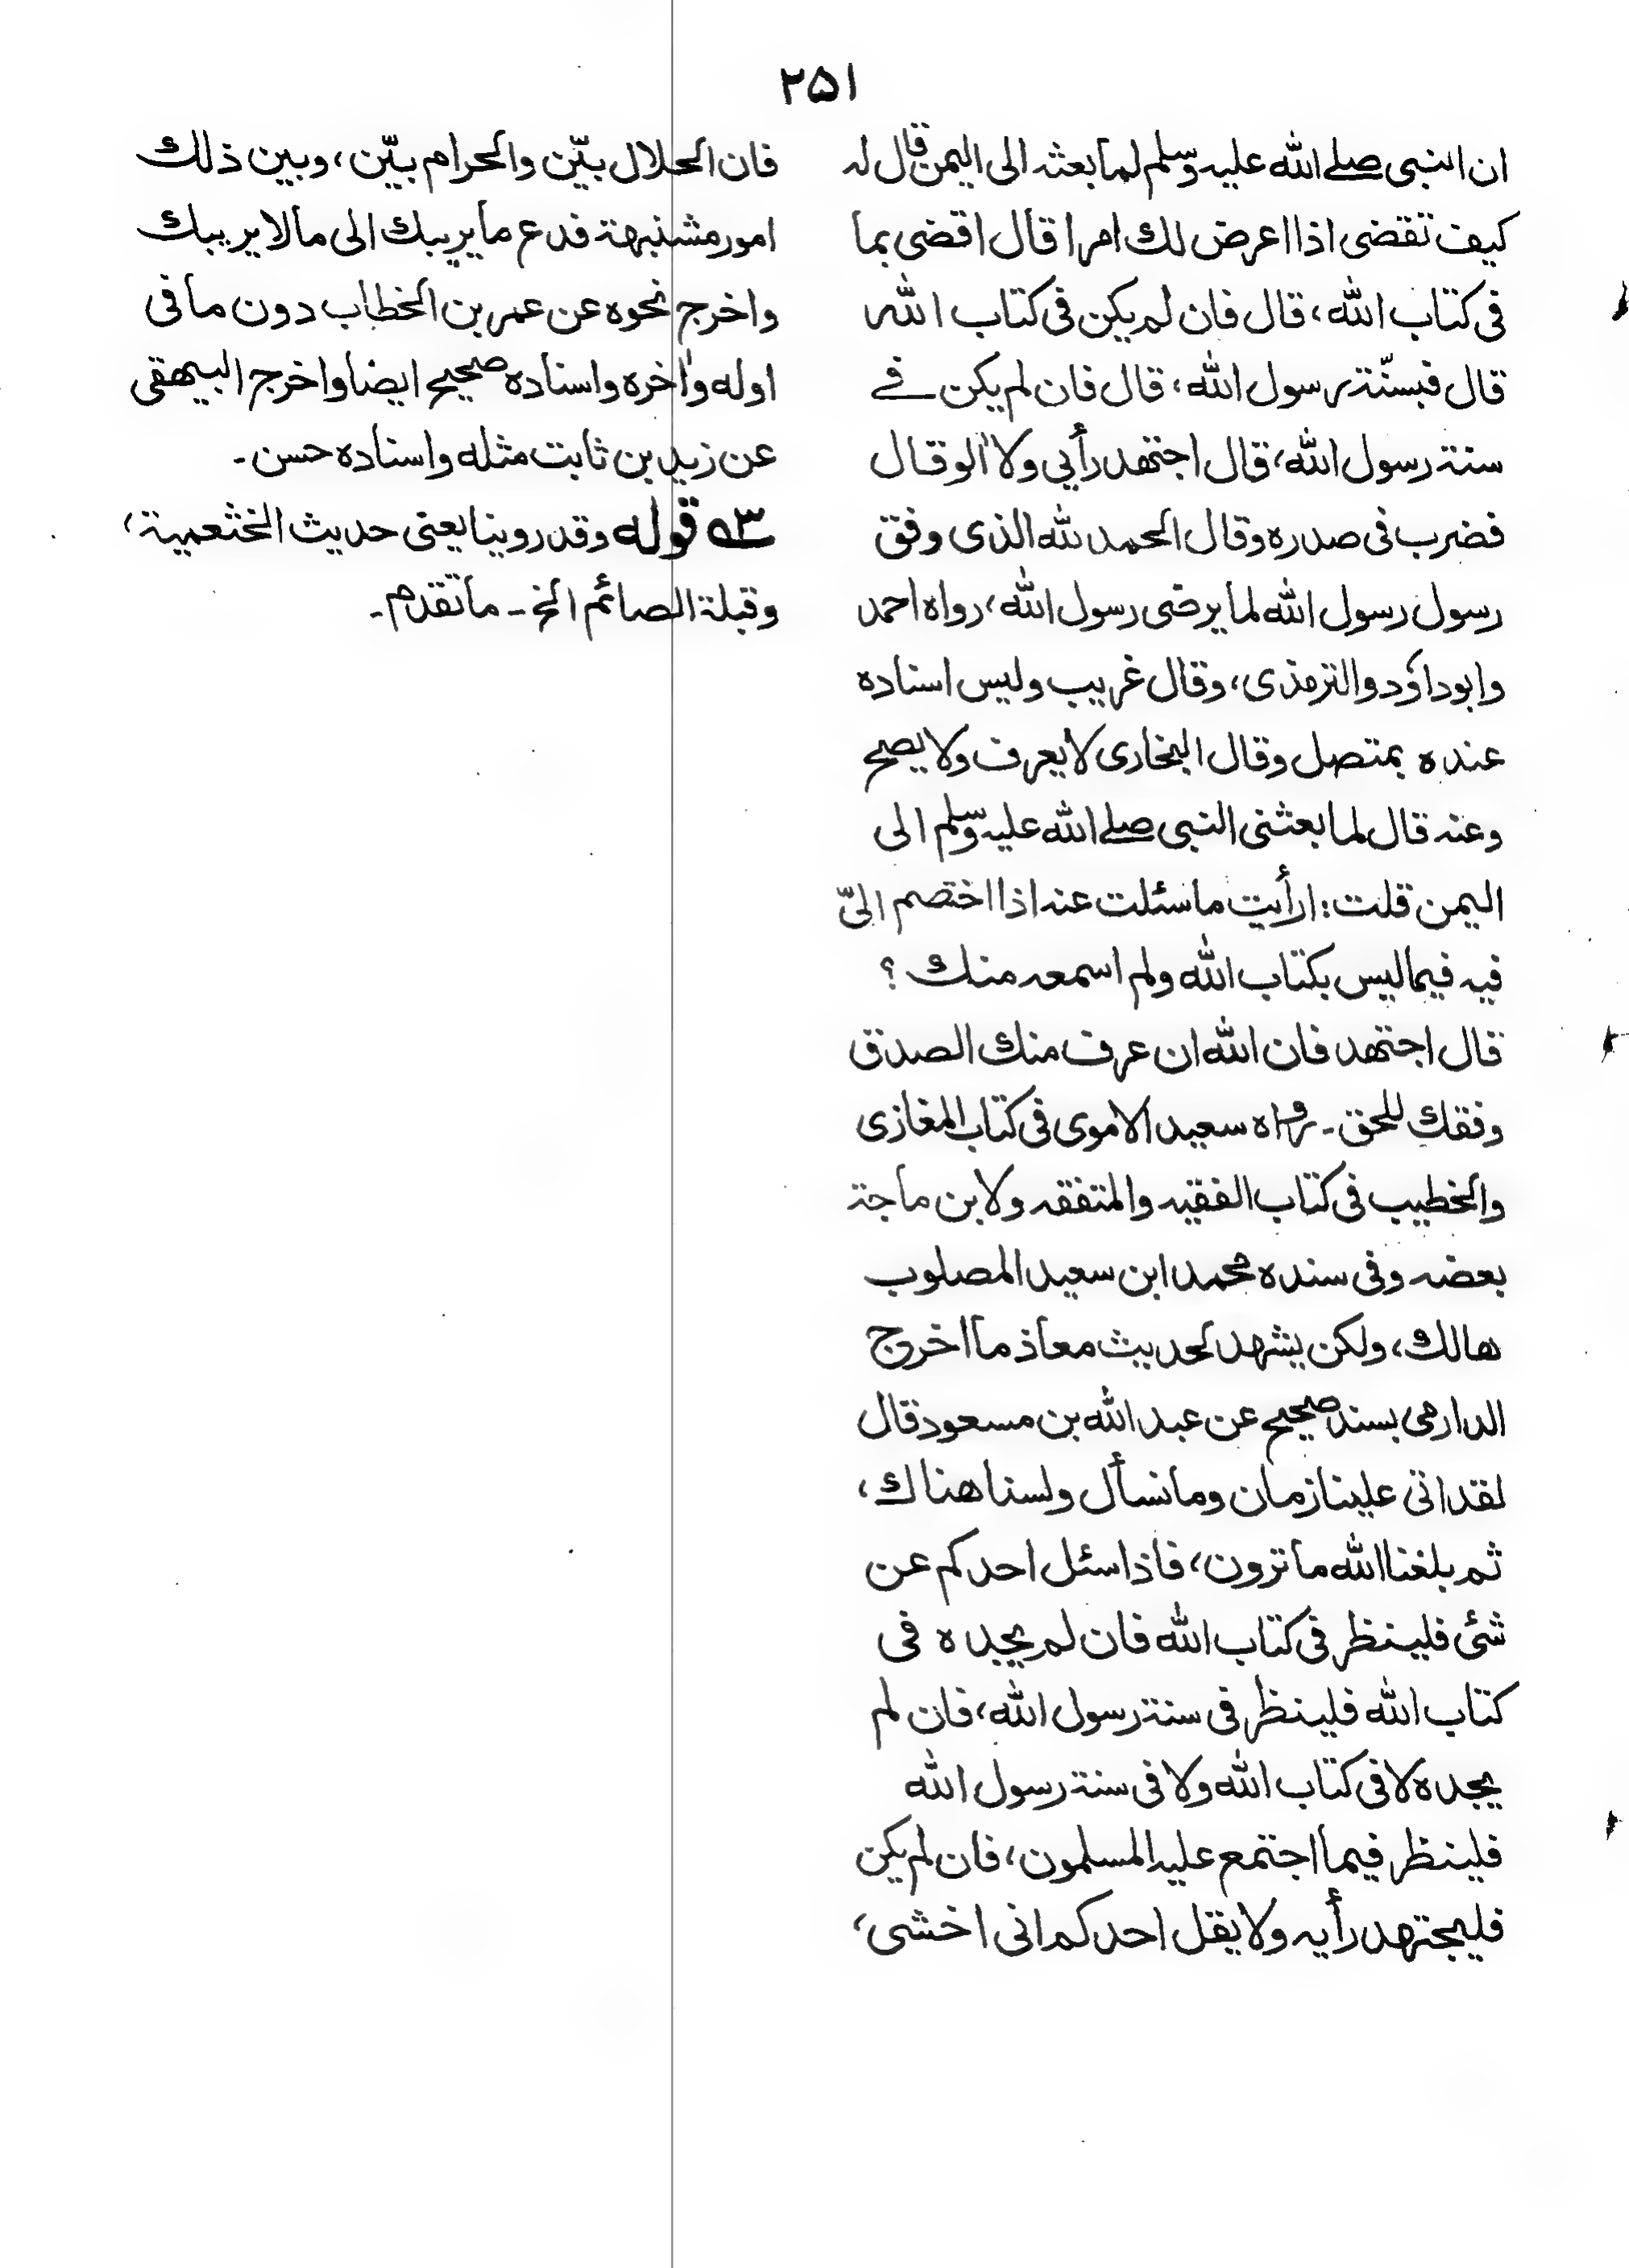 ۲۵۱
ان النبی صلے اللہ علیہ وسلم لما بعثہ الی الیمن قال لہ
کیف تقضی اذا اعرض لك امرا قال اقضی بما
فی کتاب اللہ، قال فان لم یکن فی کتاب اللہ
قال فبسنّۃ رسول اللہ، قال فان لم یکن فے
سنۃ رسول اللہ، قال اجتھد رأیی ولا اٰلو قال
فضرب فی صدرہ وقال الحمد للہ الذی وفق
رسول رسول اللہ لما یرضی رسول اللہ، رواہ احمد
وابوداؤد والترمذی، وقال غریب ولیس اسنادہ
عندہ بمتصل وقال البخاری لا یعرف ولا یصح
وعنہ قال لما بعثنی النبی صلے اللہ علیہ وسلم الی
الیمن قلت: ارأیت ما سئلت عنہ اذا اختصم الیّ
فیہ فیما لیس بکتاب اللہ ولم اسمعہ منك ؟
قال اجتھد فان اللہ ان عرف منك الصدق
وفقك للحق۔ رواہ سعید الاموی فی کتاب المغازی
والخطیب فی کتاب الفقیہ والمتفقہ ولابن ماجۃ
بعضہ وفی سندہ محمد ابن سعید المصلوب
ھالك، ولکن یشھد لحدیث معاذ ما اخرج
الدارمی بسند صحیح عن عبد اللہ بن مسعود قال
لقد اتی علینا زمان وما نسأل ولسنا ھناك،
ثم بلغنا اللہ ما ترون، فاذا سئل احدکم عن
شئ فلینظر فی کتاب اللہ فان لم یجدہ فی
کتاب اللہ فلینظر فی سنۃ رسول اللہ، فان لم
یجدہ لا فی کتاب اللہ ولا فی سنۃ رسول اللہ
فلینظر فیما اجتمع علیہ المسلمون، فان لم یکن
فلیجتھد رأیہ ولا یقل احدکم انی اخشی،
فان الحلال بیّن والحرام بیّن، وبین ذلك
امور مشتبھۃ فدع ما یریبك الی ما لا یریبك
واخرج نحوہ عن عمر بن الخطاب دون ما فی
اولہ واٰخرہ واسنادہ صحیح ایضا واخرج البیھقی
عن زید بن ثابت مثلہ واسنادہ حسن۔
۵۳ قولہ وقد روینا یعنی حدیث الخثعمیۃ،
وقبلۃ الصائم الخ۔ ما تقدم۔